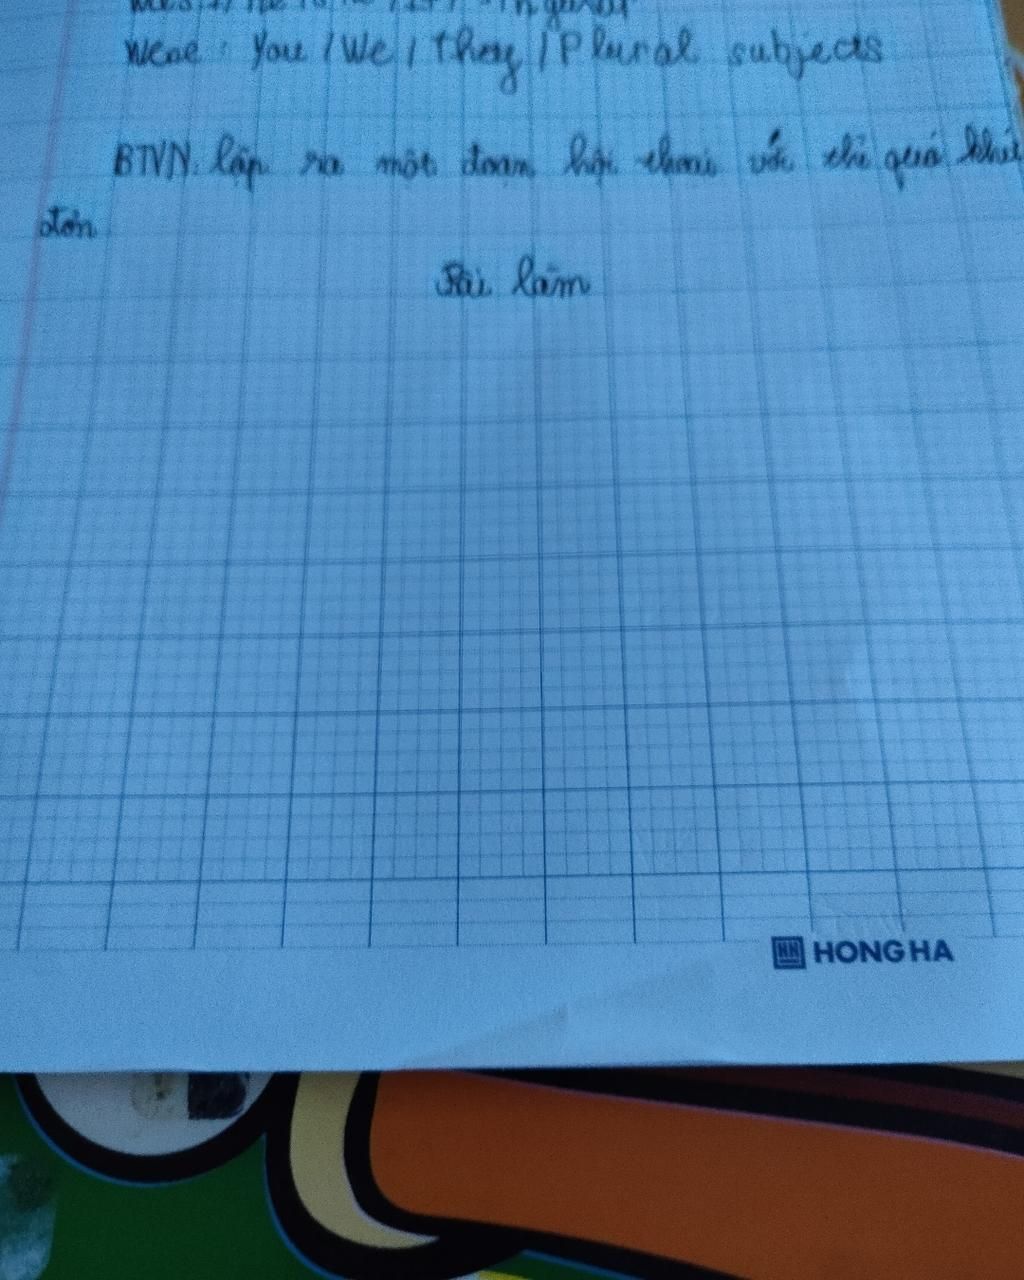 were: You / We / They / Plural subjects
BTVN: lập ra một đoạn hội thoại với thì quá khứ
đơn
Bài làm
HONG HA